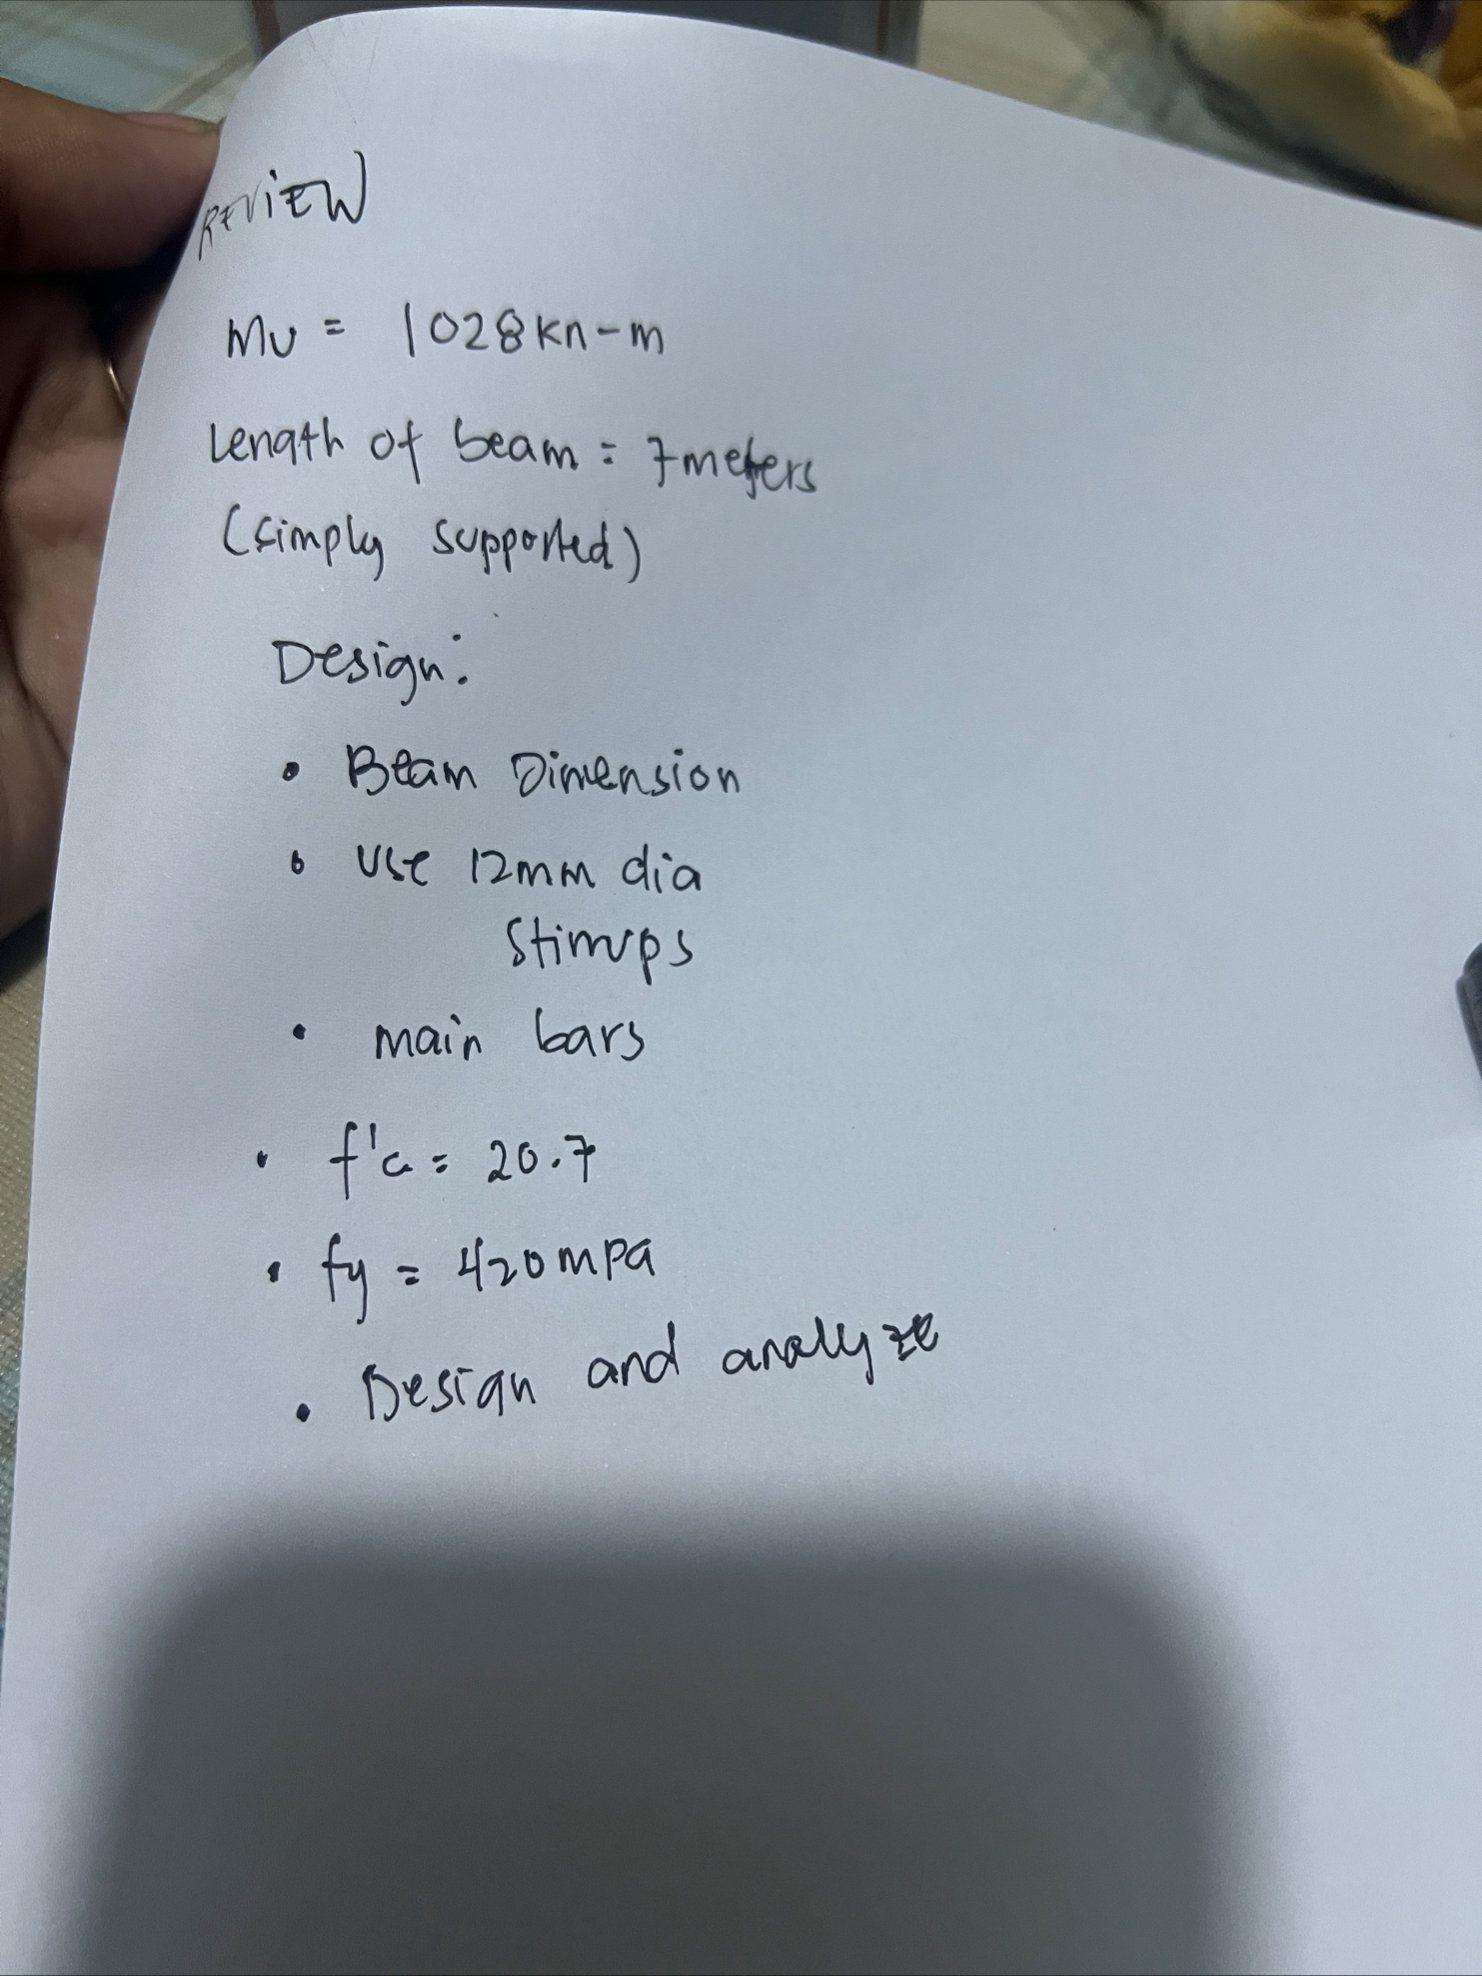 REVIEW
Mu = 1028kn-m
Length of beam = 7meters
(simply supported)
Design:
• Beam Dimension
• Use 12mm dia
Stirrups
• main bars
• f'c = 20.7
• fy = 420mpa
• Design and analyze